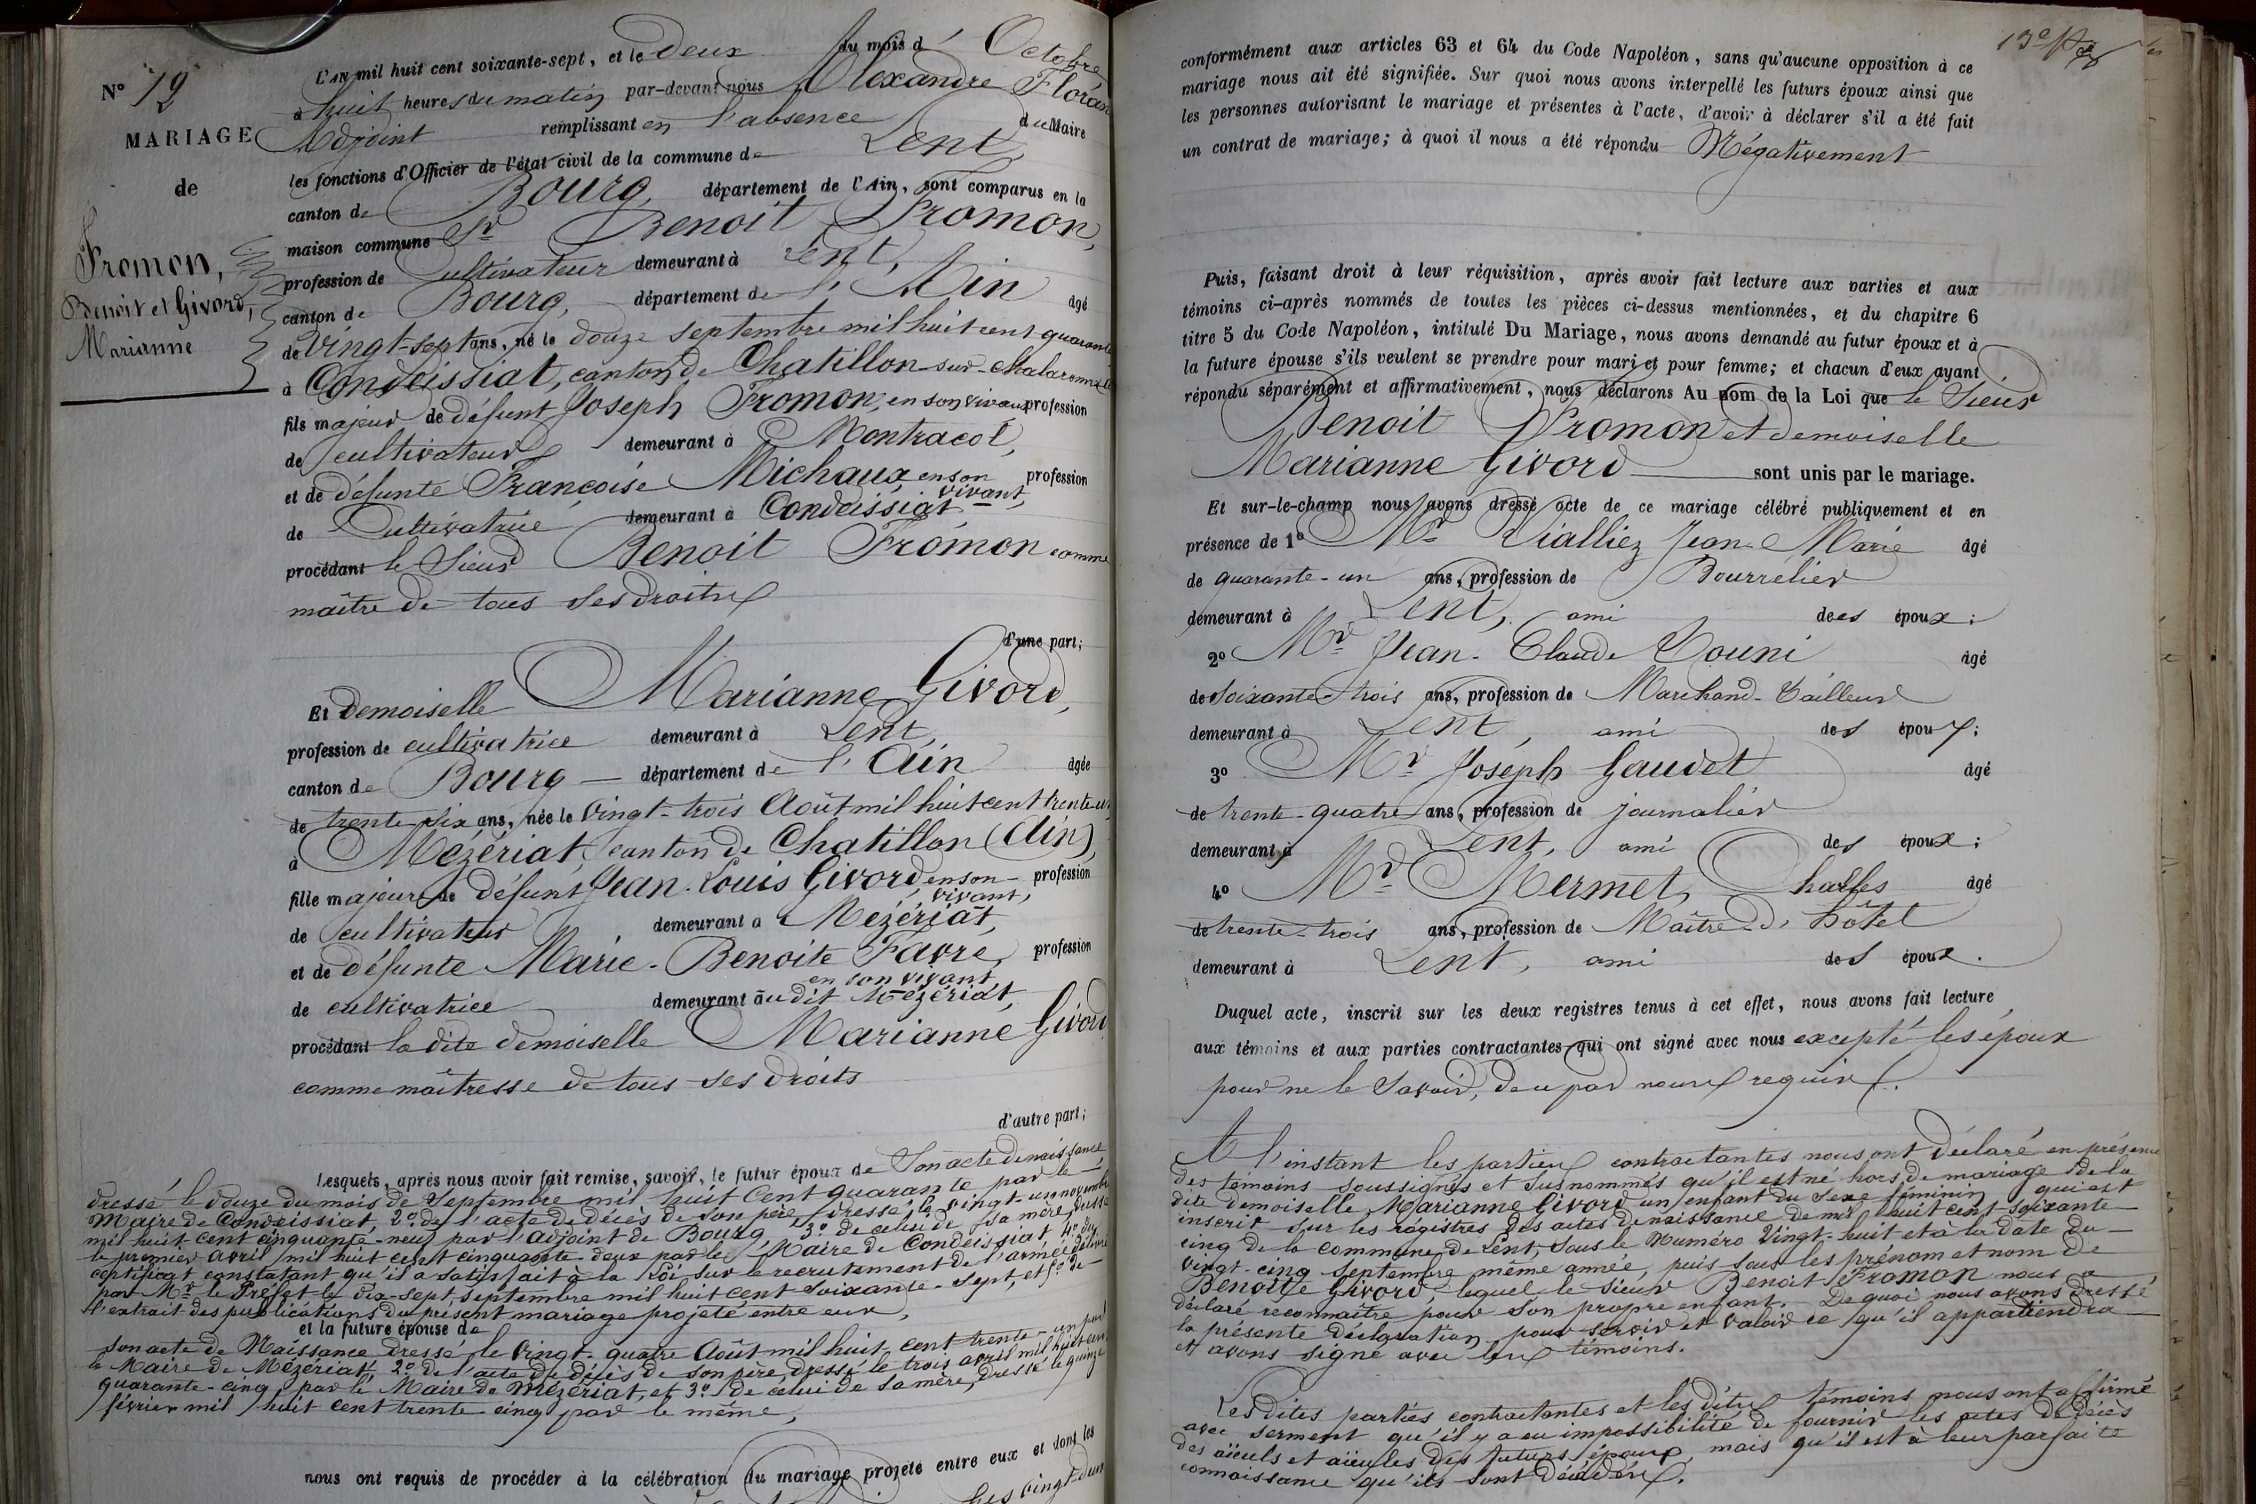 N° 12
MARIAGE
de
Fromon,
Benoit et Givord,
Marianne
L'AN mil huit cent soixante-sept, et le deux du mois d' Octobre
à huit heures du matin par-devant nous Alexandre Floran
Adjoint remplissant en l'absence du Maire
les fonctions d'Officier de l'état civil de la commune de Lent,
canton de Bourg, département de l'Ain, sont comparus en la
maison commune Sr Benoit Fromon,
profession de Cultivateur demeurant à Lent,
canton de Bourg, département de l'Ain âgé
de Vingt-sept ans, né le douze septembre mil huit cent quarante
à Condeissiat, canton de Chatillon-sur-Chalaronne
fils majeur de défunt Joseph Fromon, en son vivant profession
de cultivateur demeurant à Montracol,
et de défunte Françoise Michaux en son vivant, profession
de Cultivatrice demeurant à Condeissiat
procédant le Sieur Benoit Fromon comme
maître de tous ses droits
d'une part;
Et Demoiselle Marianne Givord,
profession de cultivatrice demeurant à Lent,
canton de Bourg — département de l'Ain âgée
de trente-six ans, née le Vingt-trois Août mil huit cent trente un
à Mézériat, canton de Chatillon (Ain),
fille majeure de défunt Jean-Louis Givord en son vivant, profession
de cultivateur demeurant à Mézériat,
et de défunte Marie-Benoite Favre, profession
en son vivant
de cultivatrice demeurant au dit Mézériat,
procédant la dite demoiselle Marianne Givord
comme maîtresse de tous ses droits
d'autre part;
Lesquels, après nous avoir fait remise, savoir, le futur époux de Son acte de naissance
dressé le douze du mois de Septembre mil huit Cent quarante par le
Maire de Condeissiat, 2° de l'acte de décès de son père, dressé le vingt-un novembre
mil huit cent cinquante-neuf par l'adjoint de Bourg, 3° de celui de sa mère, dressé
le premier avril mil huit cent cinquante-deux par le Maire de Condeissiat, 4° du
certificat constatant qu'il a satisfait à la Loi sur le recrutement de l'armée délivré
par Mr le Préfet le dix-sept septembre mil huit cent Soixante-sept, et 5° de
l'extrait des publications du présent mariage projeté entre eux,
et la future épouse de
son acte de Naissance dressé le Vingt-quatre Août mil huit cent trente-un par
le Maire de Mézériat, 2° de l'acte de décès de son père, dressé le trois avril mil huit cent
quarante-cinq par le Maire de Mézériat, et 3° de celui de sa mère, dressé le quinze
février mil huit cent trente cinq par le même,
nous ont requis de procéder à la célébration du mariage projeté entre eux et dont les
conformément aux articles 63 et 64 du Code Napoléon, sans qu'aucune opposition à ce
mariage nous ait été signifiée. Sur quoi nous avons interpellé les futurs époux ainsi que
les personnes autorisant le mariage et présentes à l'acte, d'avoir à déclarer s'il a été fait
un contrat de mariage; à quoi il nous a été répondu Négativement
Puis, faisant droit à leur réquisition, après avoir fait lecture aux parties et aux
témoins ci-après nommés de toutes les pièces ci-dessus mentionnées, et du chapitre 6
titre 5 du Code Napoléon, intitulé Du Mariage, nous avons demandé au futur époux et à
la future épouse s'ils veulent se prendre pour mari et pour femme; et chacun d'eux ayant
répondu séparément et affirmativement, nous déclarons Au nom de la Loi que le Sieur
Benoit Fromon et demoiselle
Marianne Givord sont unis par le mariage.
Et sur-le-champ nous avons dressé acte de ce mariage célébré publiquement et en
présence de 1° Mr Vialliez Jean-Marie âgé
de quarante-un ans, profession de Bourrelier
demeurant à Lent, ami des époux;
2° Mr Jean-Claude Touni âgé
de Soixante-trois ans, profession de Marchand-Tailleur
demeurant à Lent, ami des époux;
3° Mr Joseph Gaudet âgé
de trente-quatre ans, profession de journalier
demeurant à Lent, ami des époux;
4° Mr Mermet, Charles âgé
de trente-trois ans, profession de Maître-d'hôtel
demeurant à Lent, ami des époux.
Duquel acte, inscrit sur les deux registres tenus à cet effet, nous avons fait lecture
aux témoins et aux parties contractantes qui ont signé avec nous excepté les époux
pour ne le savoir, de ce par nous requis.
A l'instant les parties contractantes nous ont déclaré en présence
des témoins soussignés et susnommés qu'il est né hors de mariage de la
dite demoiselle Marianne Givord un enfant du Sexe féminin qui est
inscrit sur les régistres des actes de naissance de mil huit cent soixante
cinq de la commune de Lent, sous le Numéro Vingt-huit et à la date du
vingt-cinq Septembre même année, puis sous les prénom et nom de
Benoite Givord, lequel le sieur Benoit Fromon nous a
déclaré reconnaître pour son propre enfant. De quoi nous avons dressé
la présente déclaration pour servir et valoir ce qu'il appartiendra
et avons signé avec les témoins.
Les dites parties contractantes et les dits témoins nous ont affirmé
avec serment qu'il y a eu impossibilité de fournir les actes de décès
des aïeuls et aïeules des futurs époux, mais qu'il est à leur parfaite
connaissance qu'ils sont décédés.